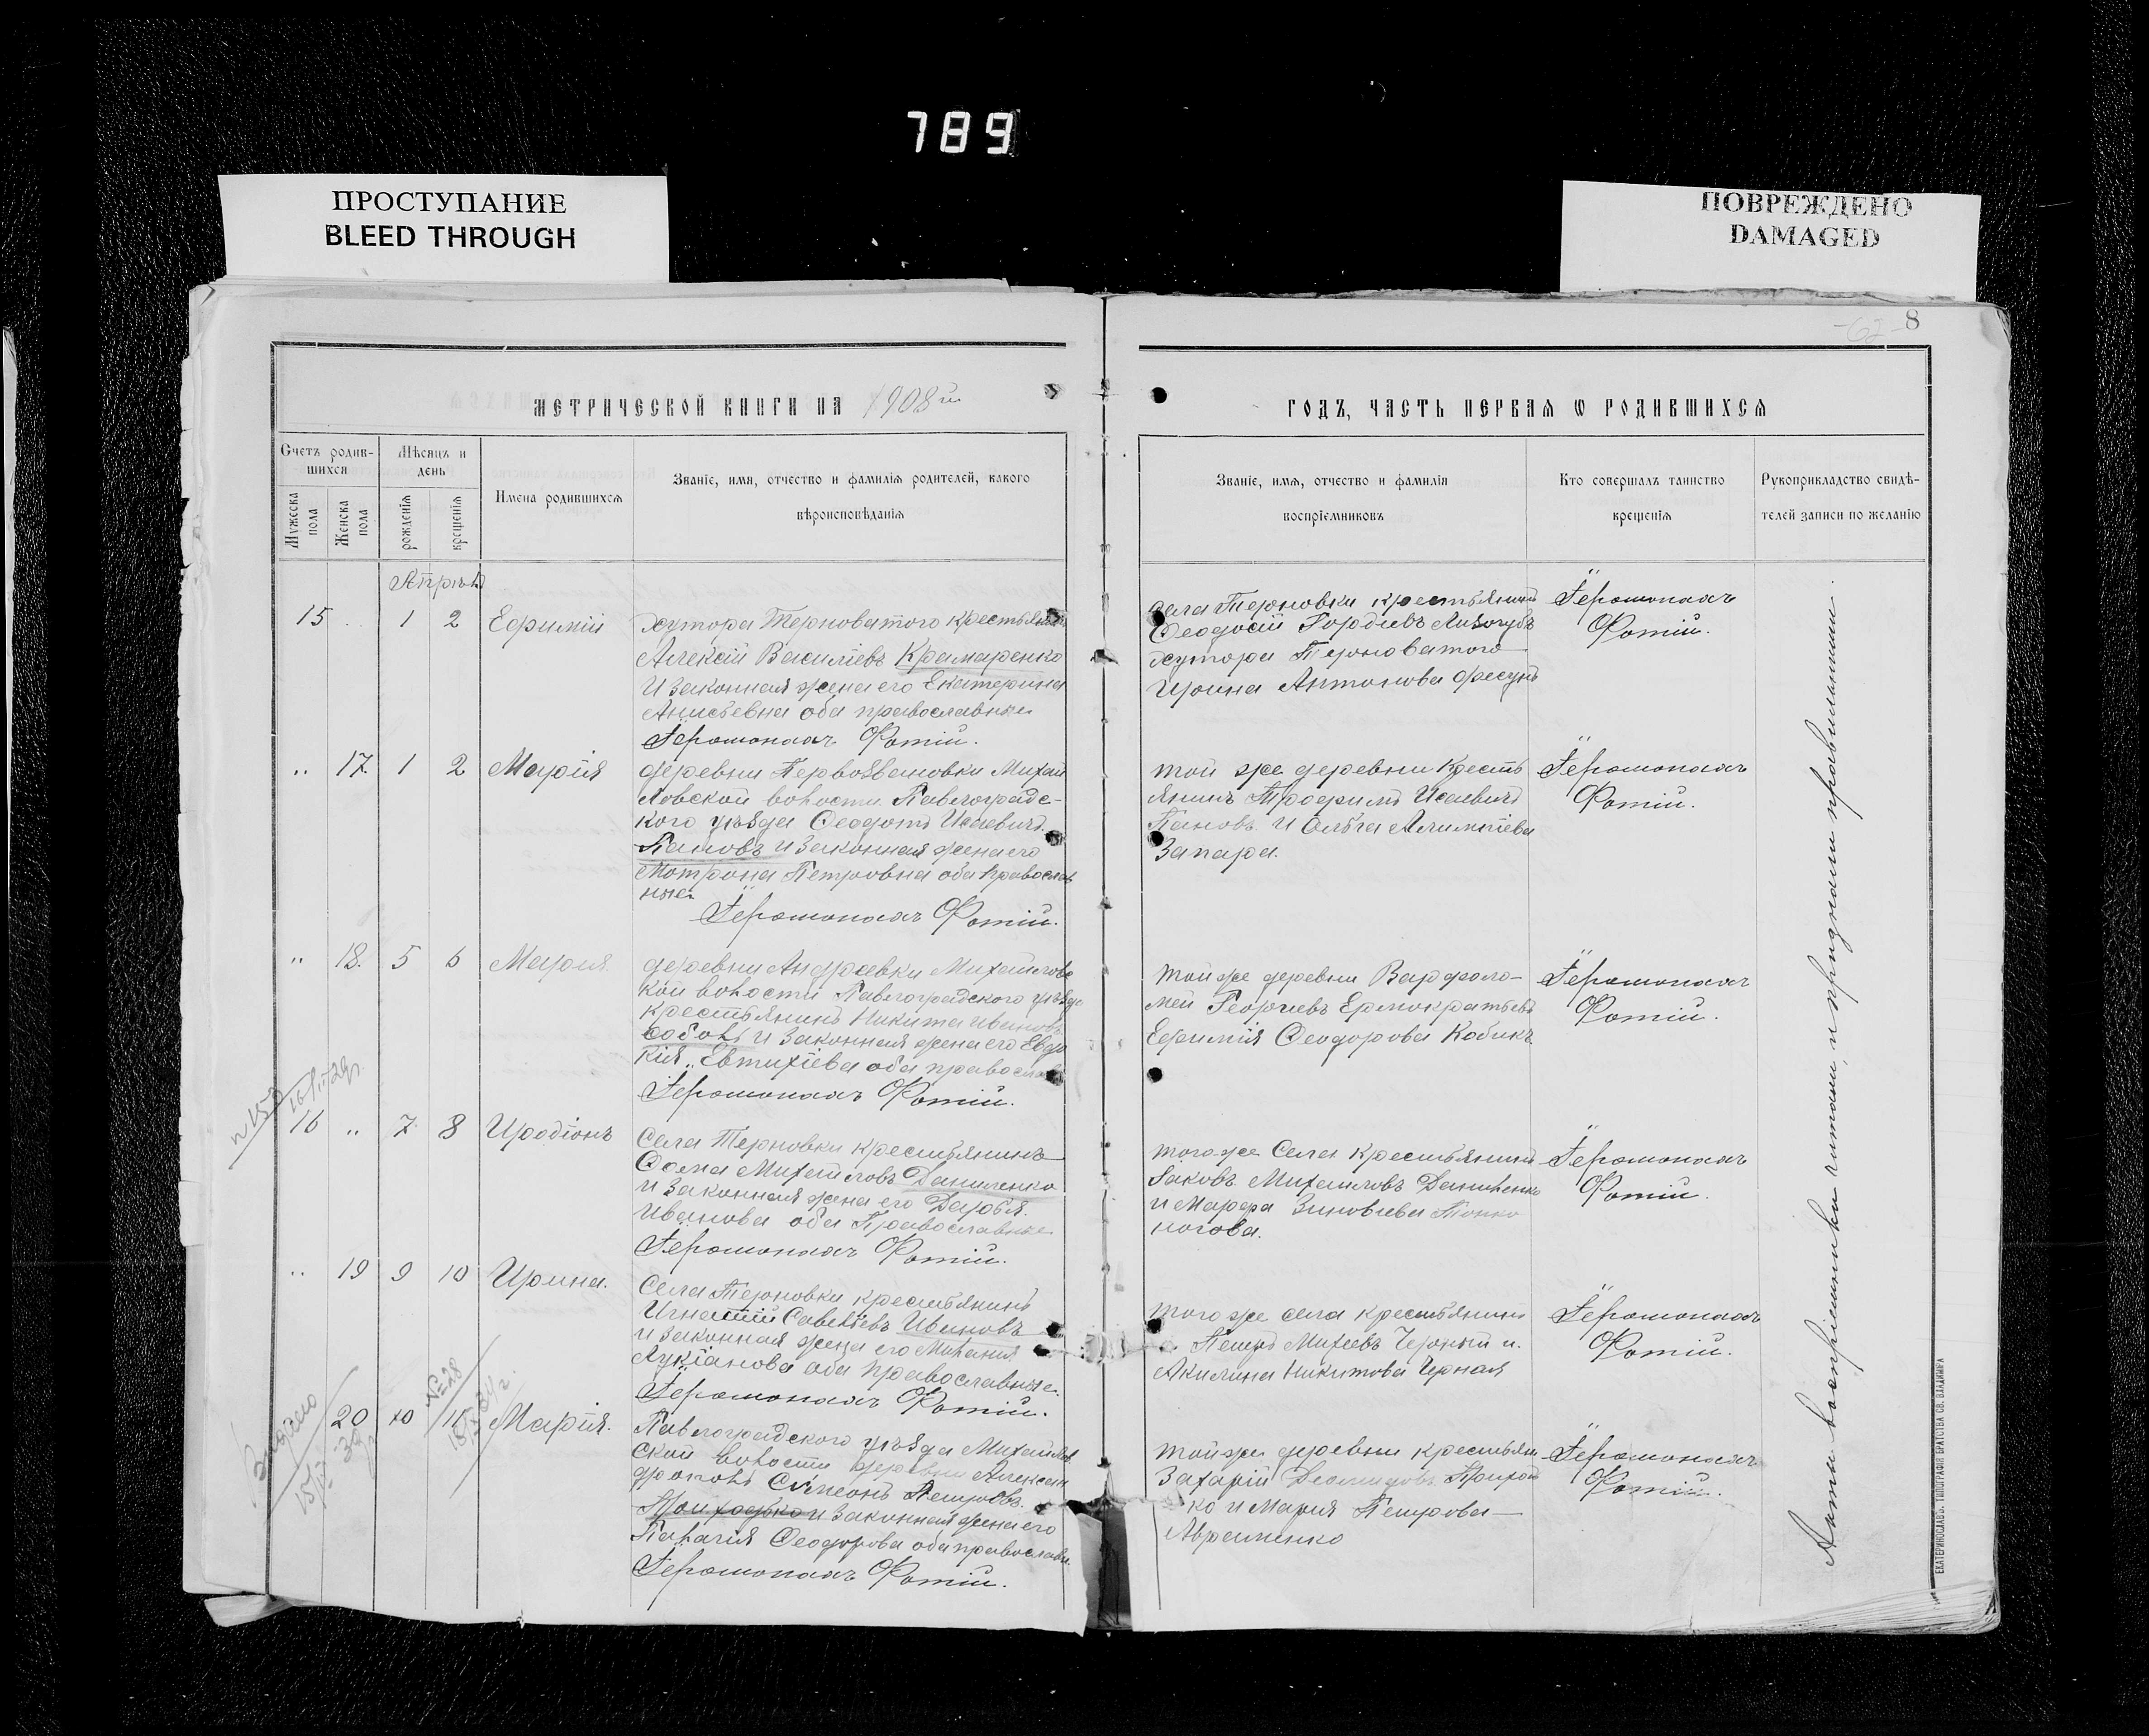 789
ПРОСТУПАНИЕ
BLEED THROUGH
ПОВРЕЖДЕНО
DAMAGED
8
МЕТРИЧЕСКОЙ КНИГИ НА 1908й
ГОДЪ, ЧАСТЬ ПЕРВАЯ Ѡ РОДИВШИХСЯ
Счетъ родив-
шихся
Мѣсяцъ и
день
Мужеска
пола
Женска
пола
рожденія
крещенія
Имена родившихся
Званіе, имя, отчество и фамилія родителей, какого
вѣроисповѣданія
Званіе, имя, отчество и фамилія
воспріемниковъ
Кто совершалъ таинство
крещенія
Рукоприкладство свидѣ-
телей записи по желанію
Апрѣль
15 1 2 Ефимій
хутора Терноватого крестьянинъ
Алексій Василіевъ Крамаренко
и законная жена его Екатерина
оба православные
Іеромонахъ Фотій.
села Терновки крестьянинъ
Феодосій Гордіевъ
хутора Терноватого
Ирина Антонова
Іеромонахъ
Фотій.
" 17 1 2 Марія
деревни Михай
ловской волости Павлоградс-
кого уѣзда Феодотъ Исаевичъ
Пановъ и законная жена его
Мотрона Петровна оба православ
ные
Іеромонахъ Фотій.
той же деревни кресть
янинъ Трофимъ Исаевичъ
Пановъ и Ольга
Запара.
Іеромонахъ
Фотій.
" 18. 5 6 Марія
деревни Андреевки Михайловс
кой волости Павлоградского уѣзда
крестьянинъ Никита Ивановъ
Соболь и законная жена его Евдо
кія Евтихіева оба православ
Іеромонахъ Фотій.
той же деревни Варфоло-
мей Георгіевъ
Ефимія Феодорова Кобикъ
Іеромонахъ
Фотій.
16 " 7 8 Иродіонъ
Села Терновки крестьянинъ
Фома Михайловъ Даниленко
и законная жена его Дарія
Иванова оба Православные
Іеромонахъ Фотій.
того же Села крестьянинъ
Іаковъ Михаиловъ Даниленко
и Марфа Зиновіева Тонко
ногова.
Іеромонахъ
Фотій.
" 19 9 10 Ирина.
Села Терновки крестьянинъ
Игнатій Савельевъ Ивановъ
и законная жена его Меланія
Лукіанова оба православные.
Іеромонахъ Фотій.
того же села крестьянинъ
Петръ Михеевъ Черный и
Акилина Никитова Черная
Іеромонахъ
Фотій.
20 10 11 Марія.
Павлоградского уѣзда Михайлов
ской волости деревни Алексан
дрополь Симеонъ Петровъ
Приходько и законная жена его
Пелагія Феодорова оба православн.
Іеромонахъ Фотій.
той же деревни крестьян
Захарій Приход
ко и Марія Петрова
Авраменко
Іеромонахъ
Фотій.
Акты воспріемники читали и признали правильными.
ЕКАТЕРИНОСЛАВЪ. ТИПОГРАФІЯ БРАТСТВА СВ. ВЛАДИМІРА